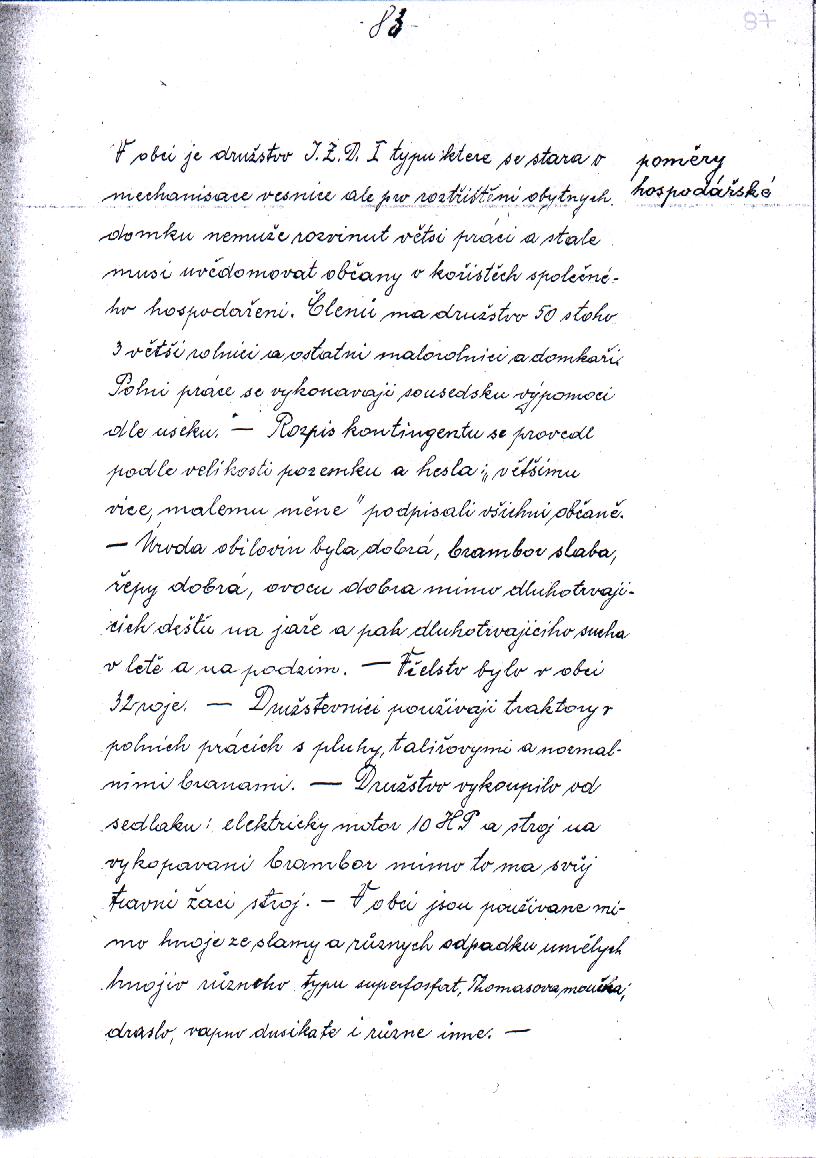 83
87
poměry
hospodářské
V obci je družstvo J.Z.D. I typu ktere se stara o
mechanisace vesnice ale pro roztříštěni obytnych
domku nemuže rozvinut větši práci a stale
musi uvědomovat občany v kořistěch společné-
ho hospodařeni. Členů ma družstvo 50 stoho
3 větší rolnici a ostatni malorolnici a domkaři.
Polni práce se vykonavaji sousedsku výpomoci
dle useku. — Rozpis kontingentu se provedl
podle velikosti pozemku a hesla: „většimu
vice, malemu méne" podpisali všichni občaně.
— Úroda obilovin byla dobrá, brambor slaba,
řepy dobrá, ovocu dobra mimo dluhotrvaji-
cich deštu na jaře a pak dluhotrvajiciho sucha
v letě a na podzim. — Včelstv bylo v obci
32 roje. — Družstevnici použivaji traktory v
polnich prácich s pluhy, taliřovymi a normal-
nimi branami. — Družstvo vykoupilo od
sedlaku: elektricky motor 10 HP a stroj na
vykopavani brambor mimo to ma svůj
travni žaci stroj. — V obci jsou použivane mi-
mo hnoje ze slamy a různych odpadku umělych
hnojiv různeho typu superfosfat, Thomasova moučka,
draslo, vapno dusikate i různe inne. —